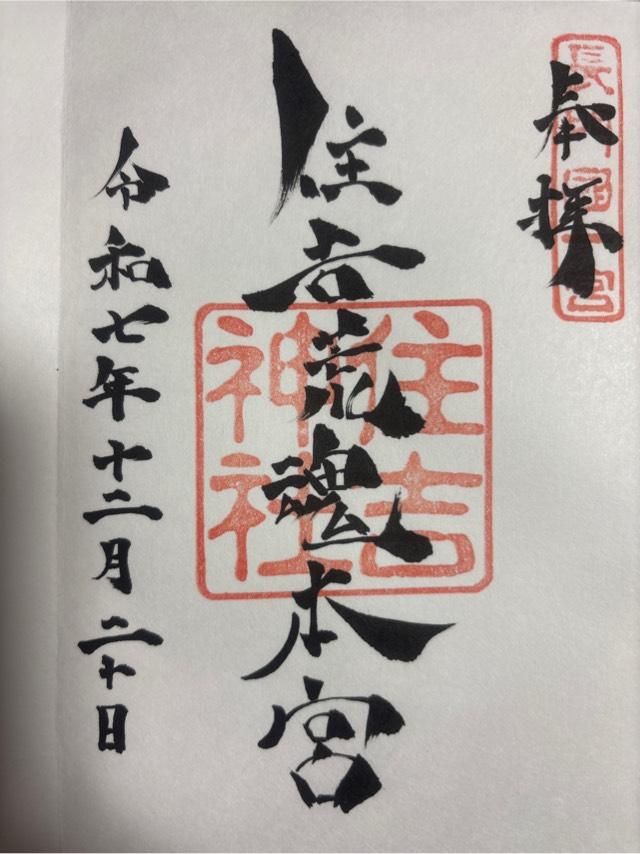 奉拝
長門國一宮
住吉荒魂本宮
住吉
神社
令和七年十二月二十日